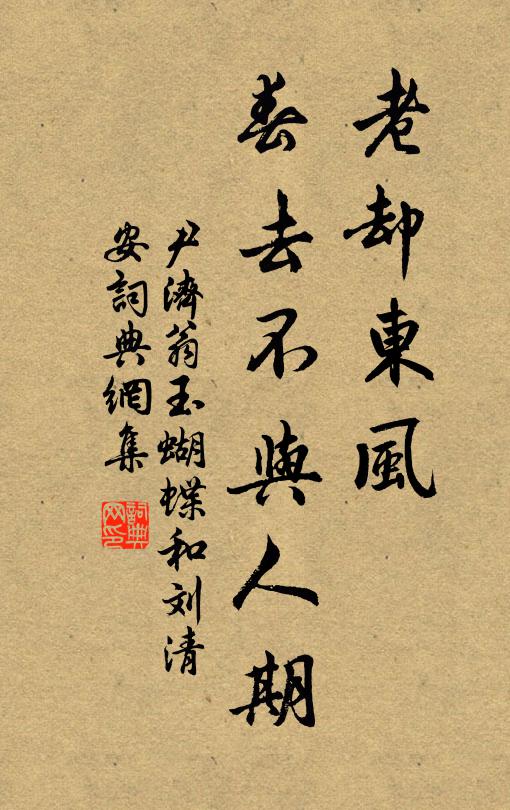 老却東風
春去不與人期
尹濟翁玉蝴蝶和刘清
安詞典網集
詞典网印